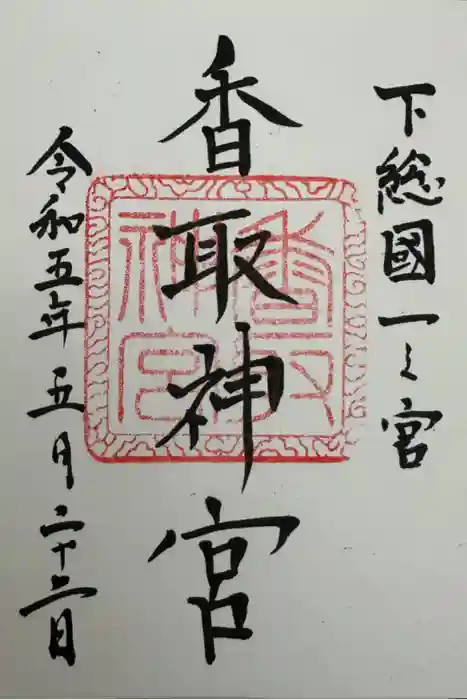 下総國一之宮
香取神宮
香取
神宮
令和五年五月二十二日